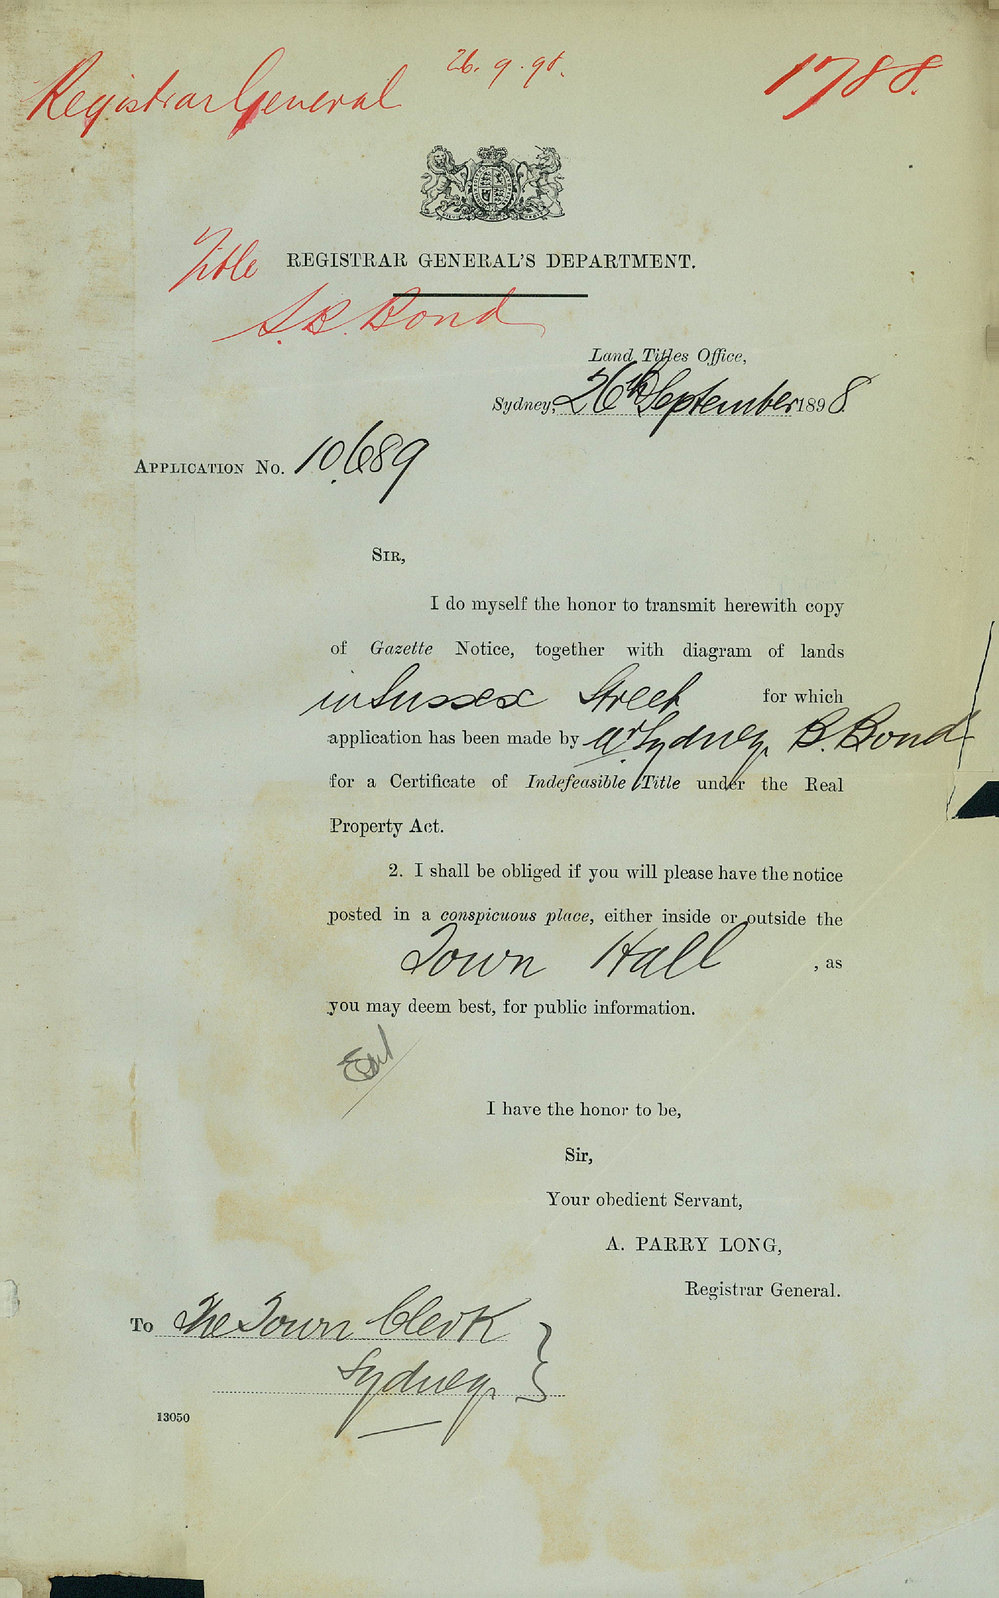 Registrar General 26.9.98. 1788.
Title REGISTRAR GENERAL'S DEPARTMENT.
S.B. Bond
Land Titles Office,
Sydney, 26th September 1898.
APPLICATION No. 10,689
SIR,
I do myself the honor to transmit herewith copy
of Gazette Notice, together with diagram of lands
in Sussex Street for which
application has been made by Mr Sydney B. Bond
for a Certificate of Indefeasible Title under the Real
Property Act.
2. I shall be obliged if you will please have the notice
posted in a conspicuous place, either inside or outside the
Town Hall , as
you may deem best, for public information.
I have the honor to be,
Sir,
Your obedient Servant,
A. PARRY LONG,
Registrar General.
To The Town Clerk
Sydney.
13050